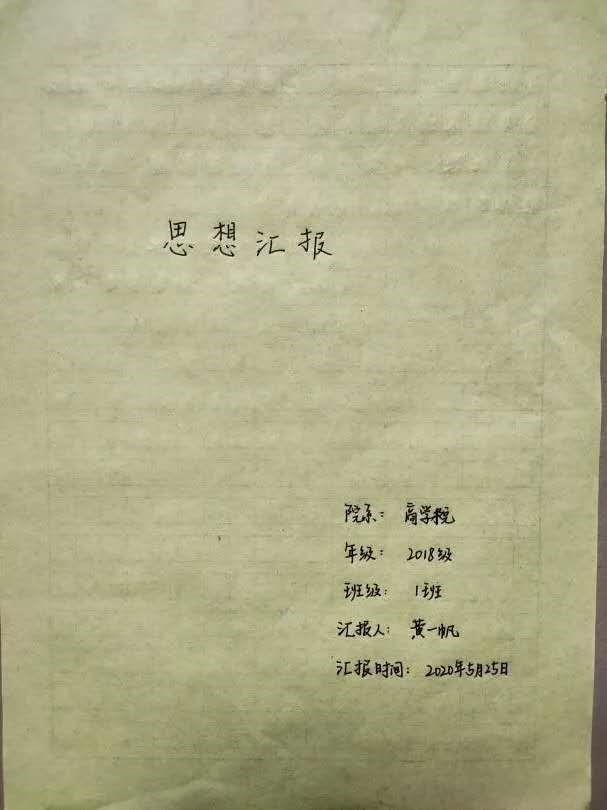 思想汇报
院系：商学院
年级：2018级
班级：1班
汇报人：黄一帆
汇报时间：2020年5月25日